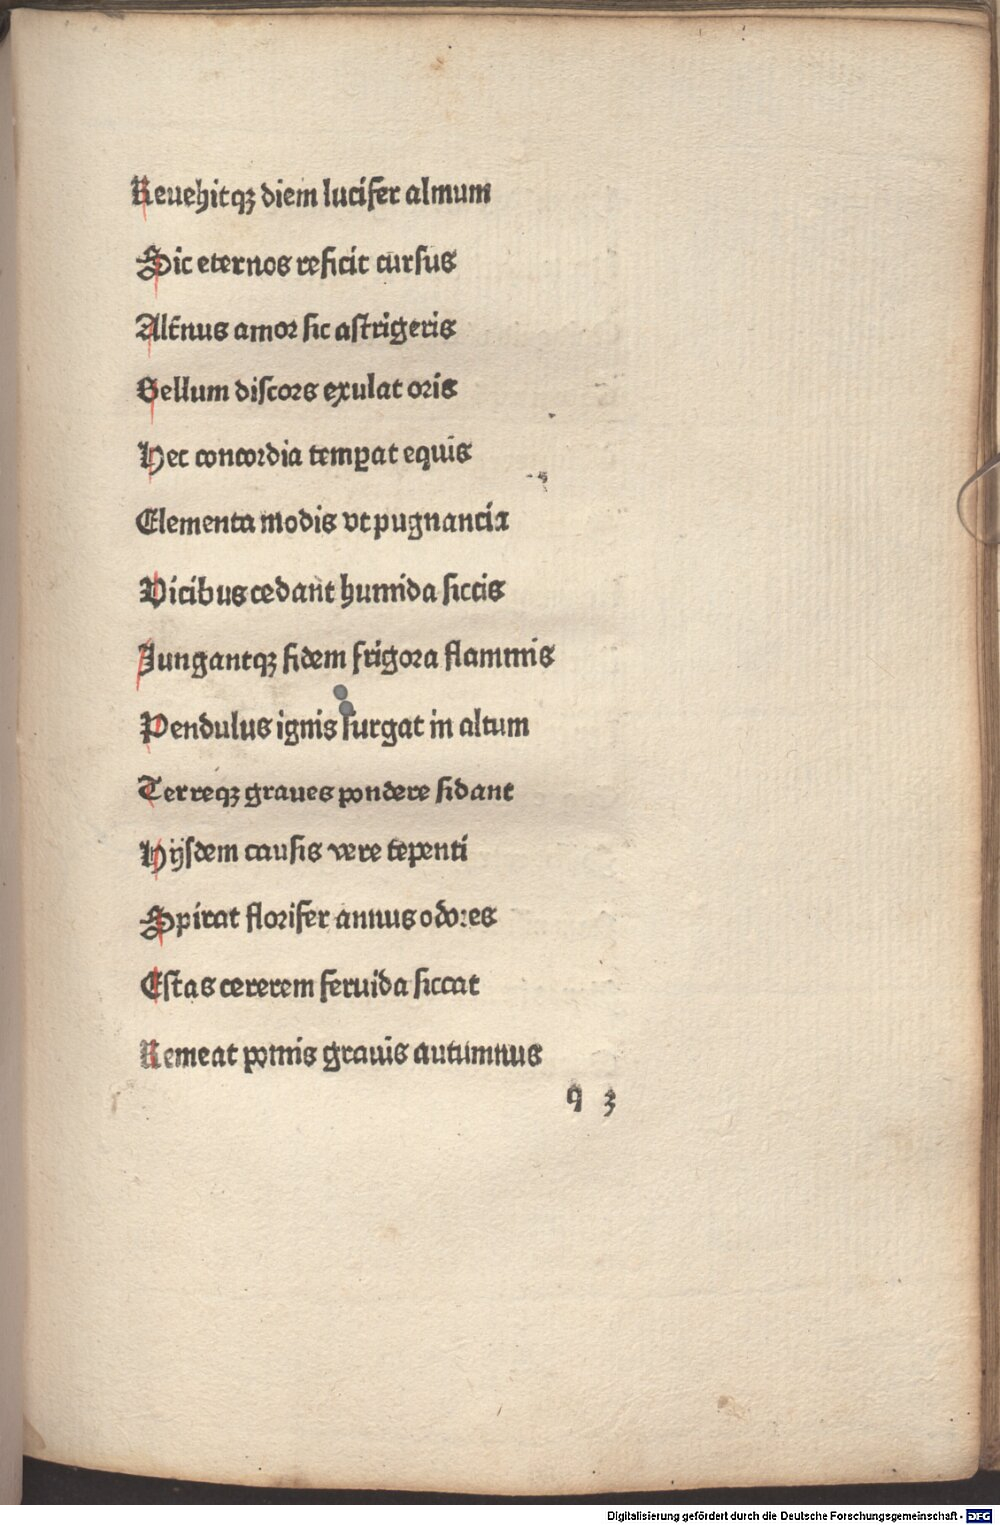 Reuehitqꝫ diem lucifer almum
Sic eternos reficit cursus
Alt̄nus amor sic astrigeris
Bellum discors exulat oris
Hec concordia temꝑat equis
Elementa modis vt pugnancia
Vicibus cedant humida siccis
Jungantqꝫ fidem frigora flammis
Pendulus ignis surgat in altum
Terreqꝫ graues pondere sidant
Hijsdem causis vere tepenti
Spirat florifer annus odores
Estas cererem feruida siccat
Remeat pomis grauis autumnus
q 3
Digitalisierung gefördert durch die Deutsche Forschungsgemeinschaft - DFG